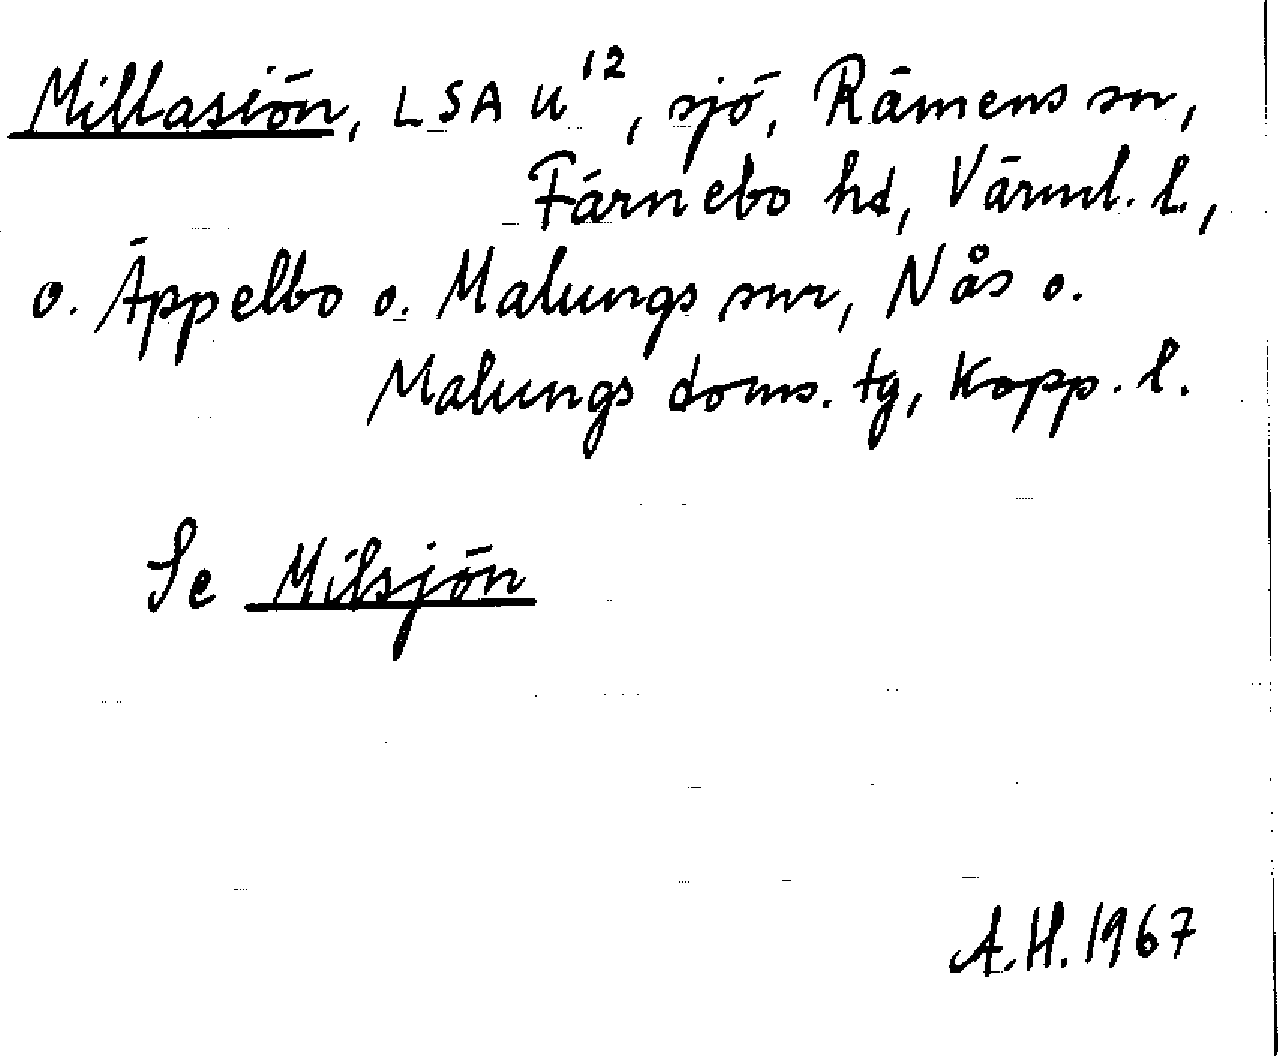 Millasiön, LSA U¹², sjö, Rämens sn,
Färnebo hd, Värml. l.,
o. Äppelbo o. Malungs snr, Nås o.
Malungs doms. tg, Kopp. l.
Se Milsjön
A.H. 1967